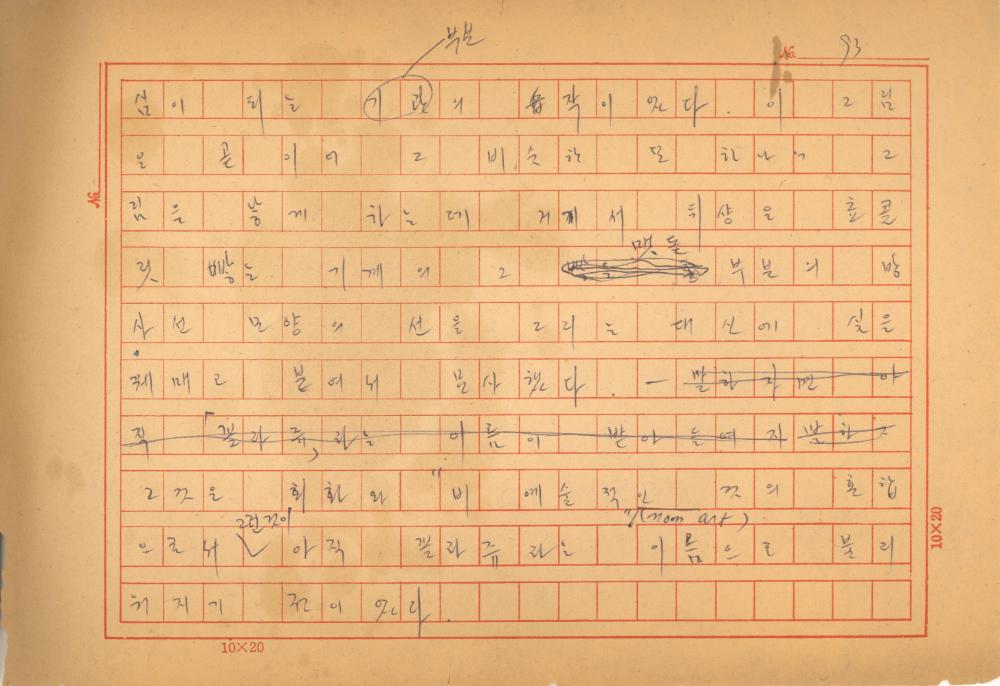 부분
No. 93
심이 되는 기관의 습작이 있다. 이 그림
을 곧 이어 그 비슷한 또 하나의 그
림을 낳게 하는데 거기서 뒤샹은 효콜
릿 빻는 기계의 그 맷돌 부분의 방
No.
사선 모양의 선을 그리는 대신에 실을
꿰매고 붙여서 묘사했다. — 말하자면 아
직 「꼴라쥬」라는 이름이 받아들여지
그것은 회화와 "비 예술적인" 것의 혼합
(non art)
그런것이
으로서 아직 꼴라쥬라는 이름으로 불리
워지기 전이 있다.
10×20
10×20